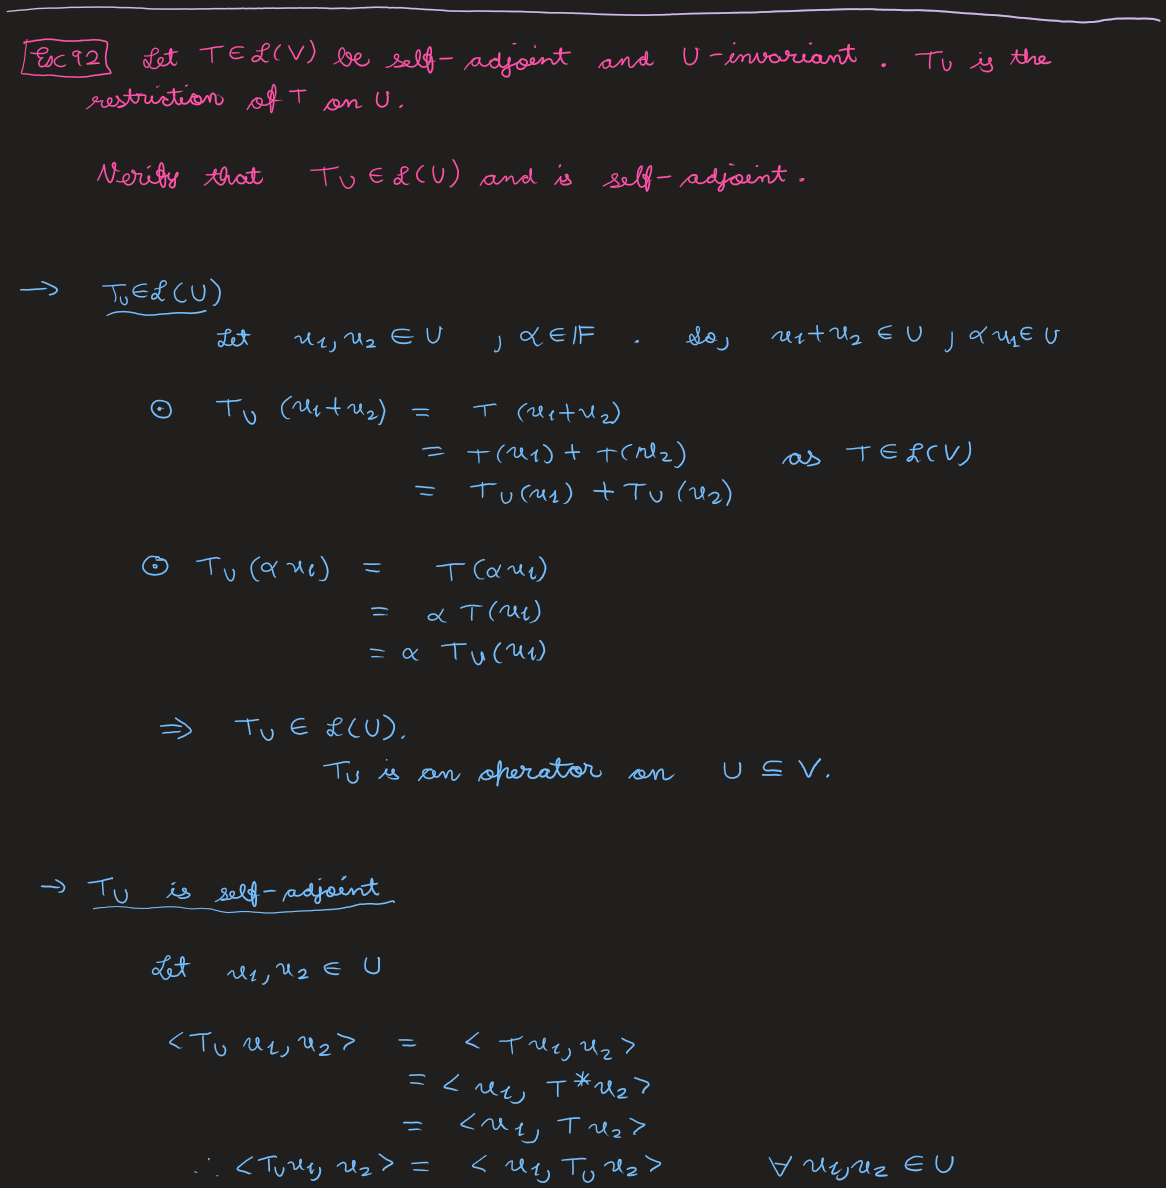 Ex 92 Let T ∈ ℒ(V) be self-adjoint and U-invariant . T_U is the
restriction of T on U.
Verify that T_U ∈ ℒ(U) and is self-adjoint.
→ T_U ∈ ℒ(U)
Let u₁, u₂ ∈ U , α ∈ 𝔽 . So, u₁+u₂ ∈ U ; αu₁ ∈ U
⊙ T_U (u₁+u₂) = T (u₁+u₂)
= T(u₁) + T(u₂) as T ∈ ℒ(V)
= T_U(u₁) + T_U (u₂)
⊙ T_U (αu₁) = T(αu₁)
= α T(u₁)
= α T_U(u₁)
⇒ T_U ∈ ℒ(U).
T_U is an operator on U ⊆ V.
→ T_U is self-adjoint
Let u₁, u₂ ∈ U
<T_U u₁, u₂> = < Tu₁, u₂>
= < u₁, T*u₂>
= <u₁, Tu₂>
∴ <T_U u₁, u₂> = < u₁, T_U u₂> ∀ u₁, u₂ ∈ U